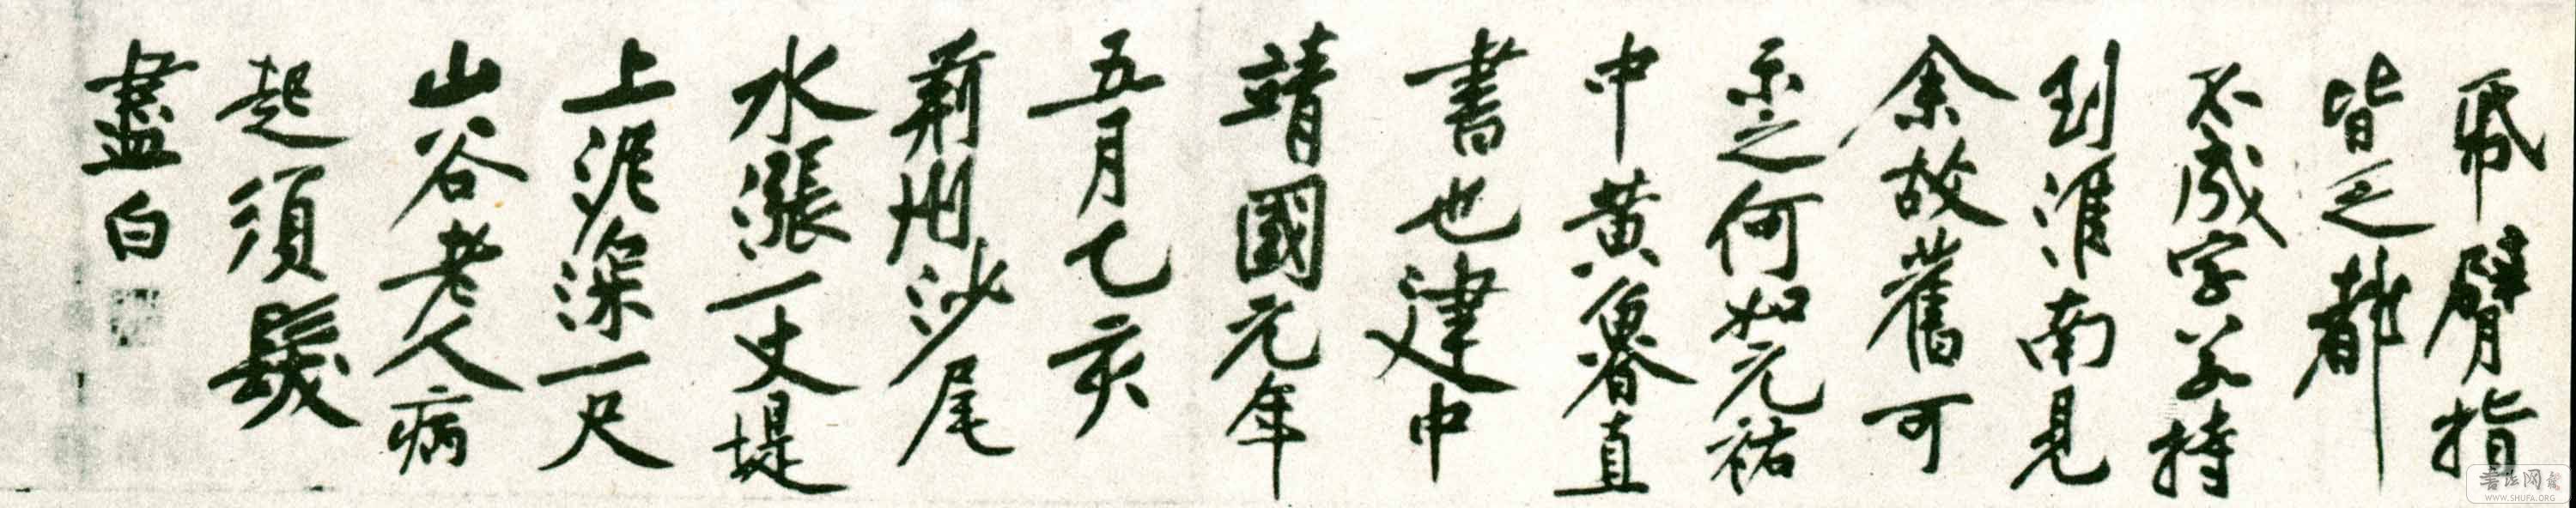 紙臂指
皆乏都
不成字若持
到淮南見
余故舊可
示之何如元祐
中黄魯直
書也建中
靖國元年
五月乙亥
荊州沙尾
水漲一丈堤
上泥深一尺
山谷老人病
起須髮
盡白
書法网
WWW.SHUFA.ORG